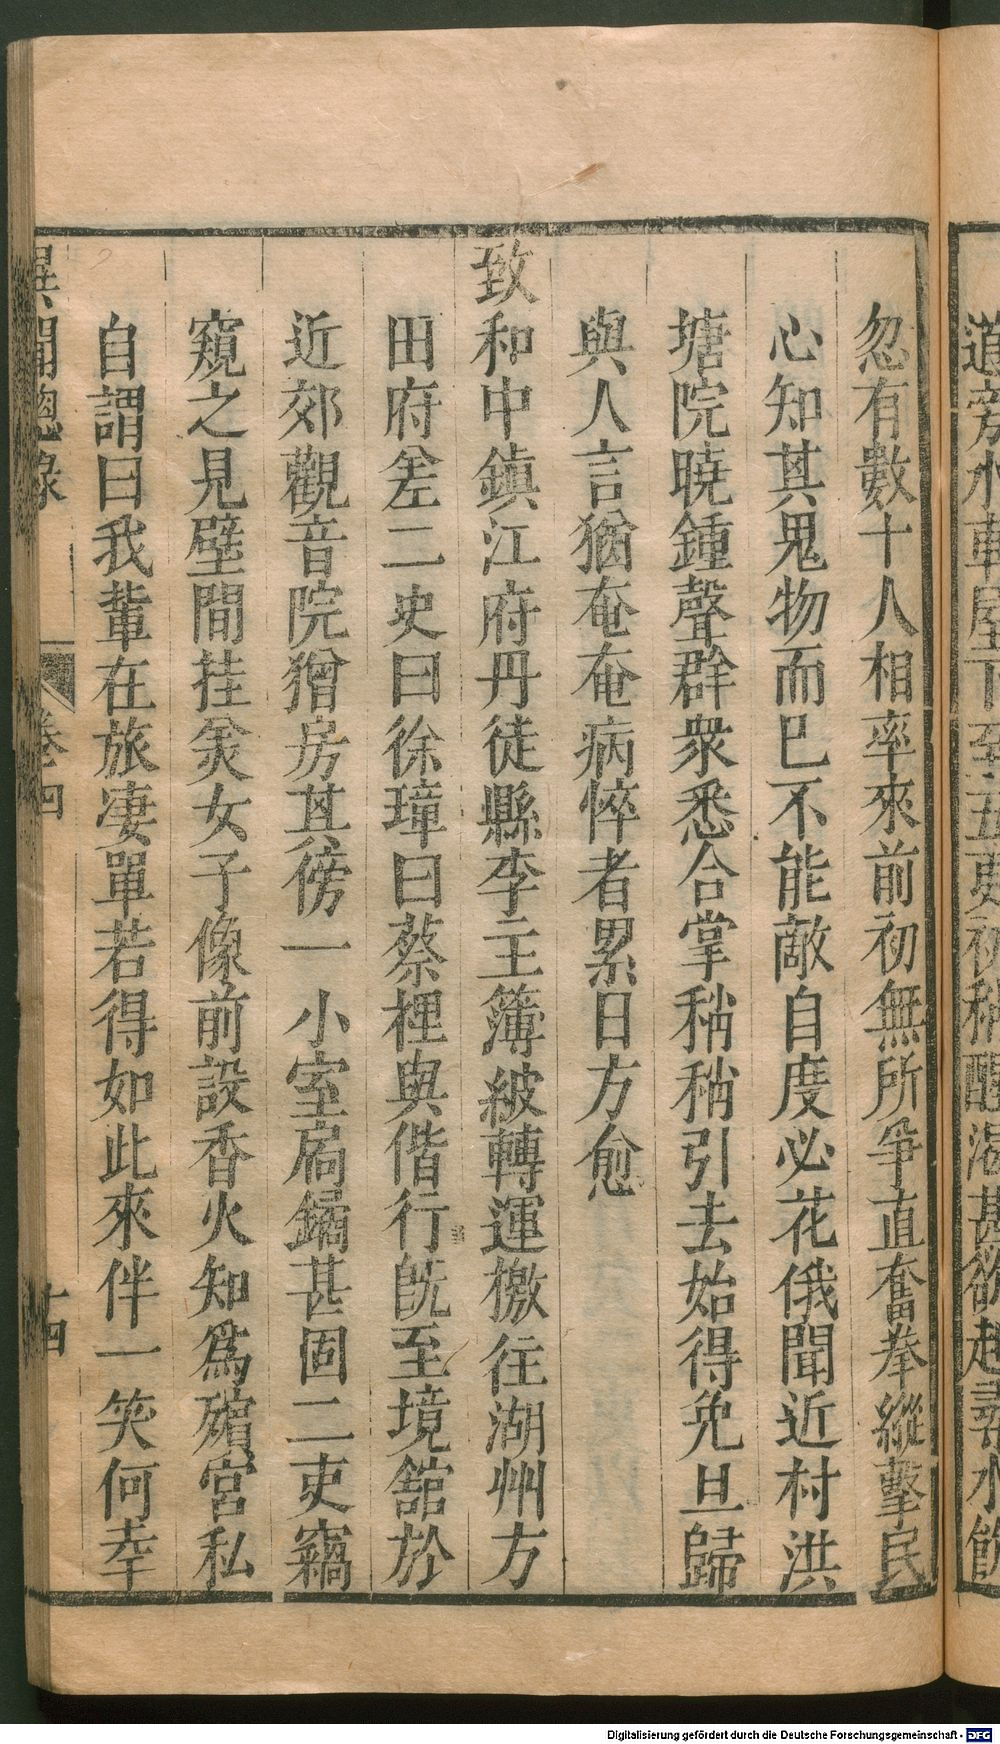 道旁水車屋下至五更初稍醒渴甚欲起尋水飲
忽有數十人相率來前初無所爭直奮拳縱擊民
心知其鬼物而已不能敵自度必花俄聞近村洪
塘院曉鍾聲群衆悉合掌稍稍引去始得免旦歸
與人言猶奄奄病悴者累日方愈
致和中鎮江府丹徒縣李主簿被轉運檄往湖州方
田府差二史曰徐璋曰蔡㮚與偕行旣至境舘於
近郊觀音院獪房其傍一小室扃鐍甚固二吏竊
窺之見壁間挂㷋女子像前設香火知爲殯宮私
自謂曰我輩在旅凄單若得如此來伴一笑何幸
異聞總錄 卷四 十四
Digitalisierung gefördert durch die Deutsche Forschungsgemeinschaft - DFG